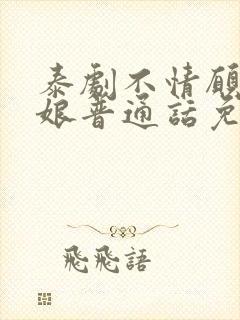 泰劇不情願
娘普通話免
飛飛語